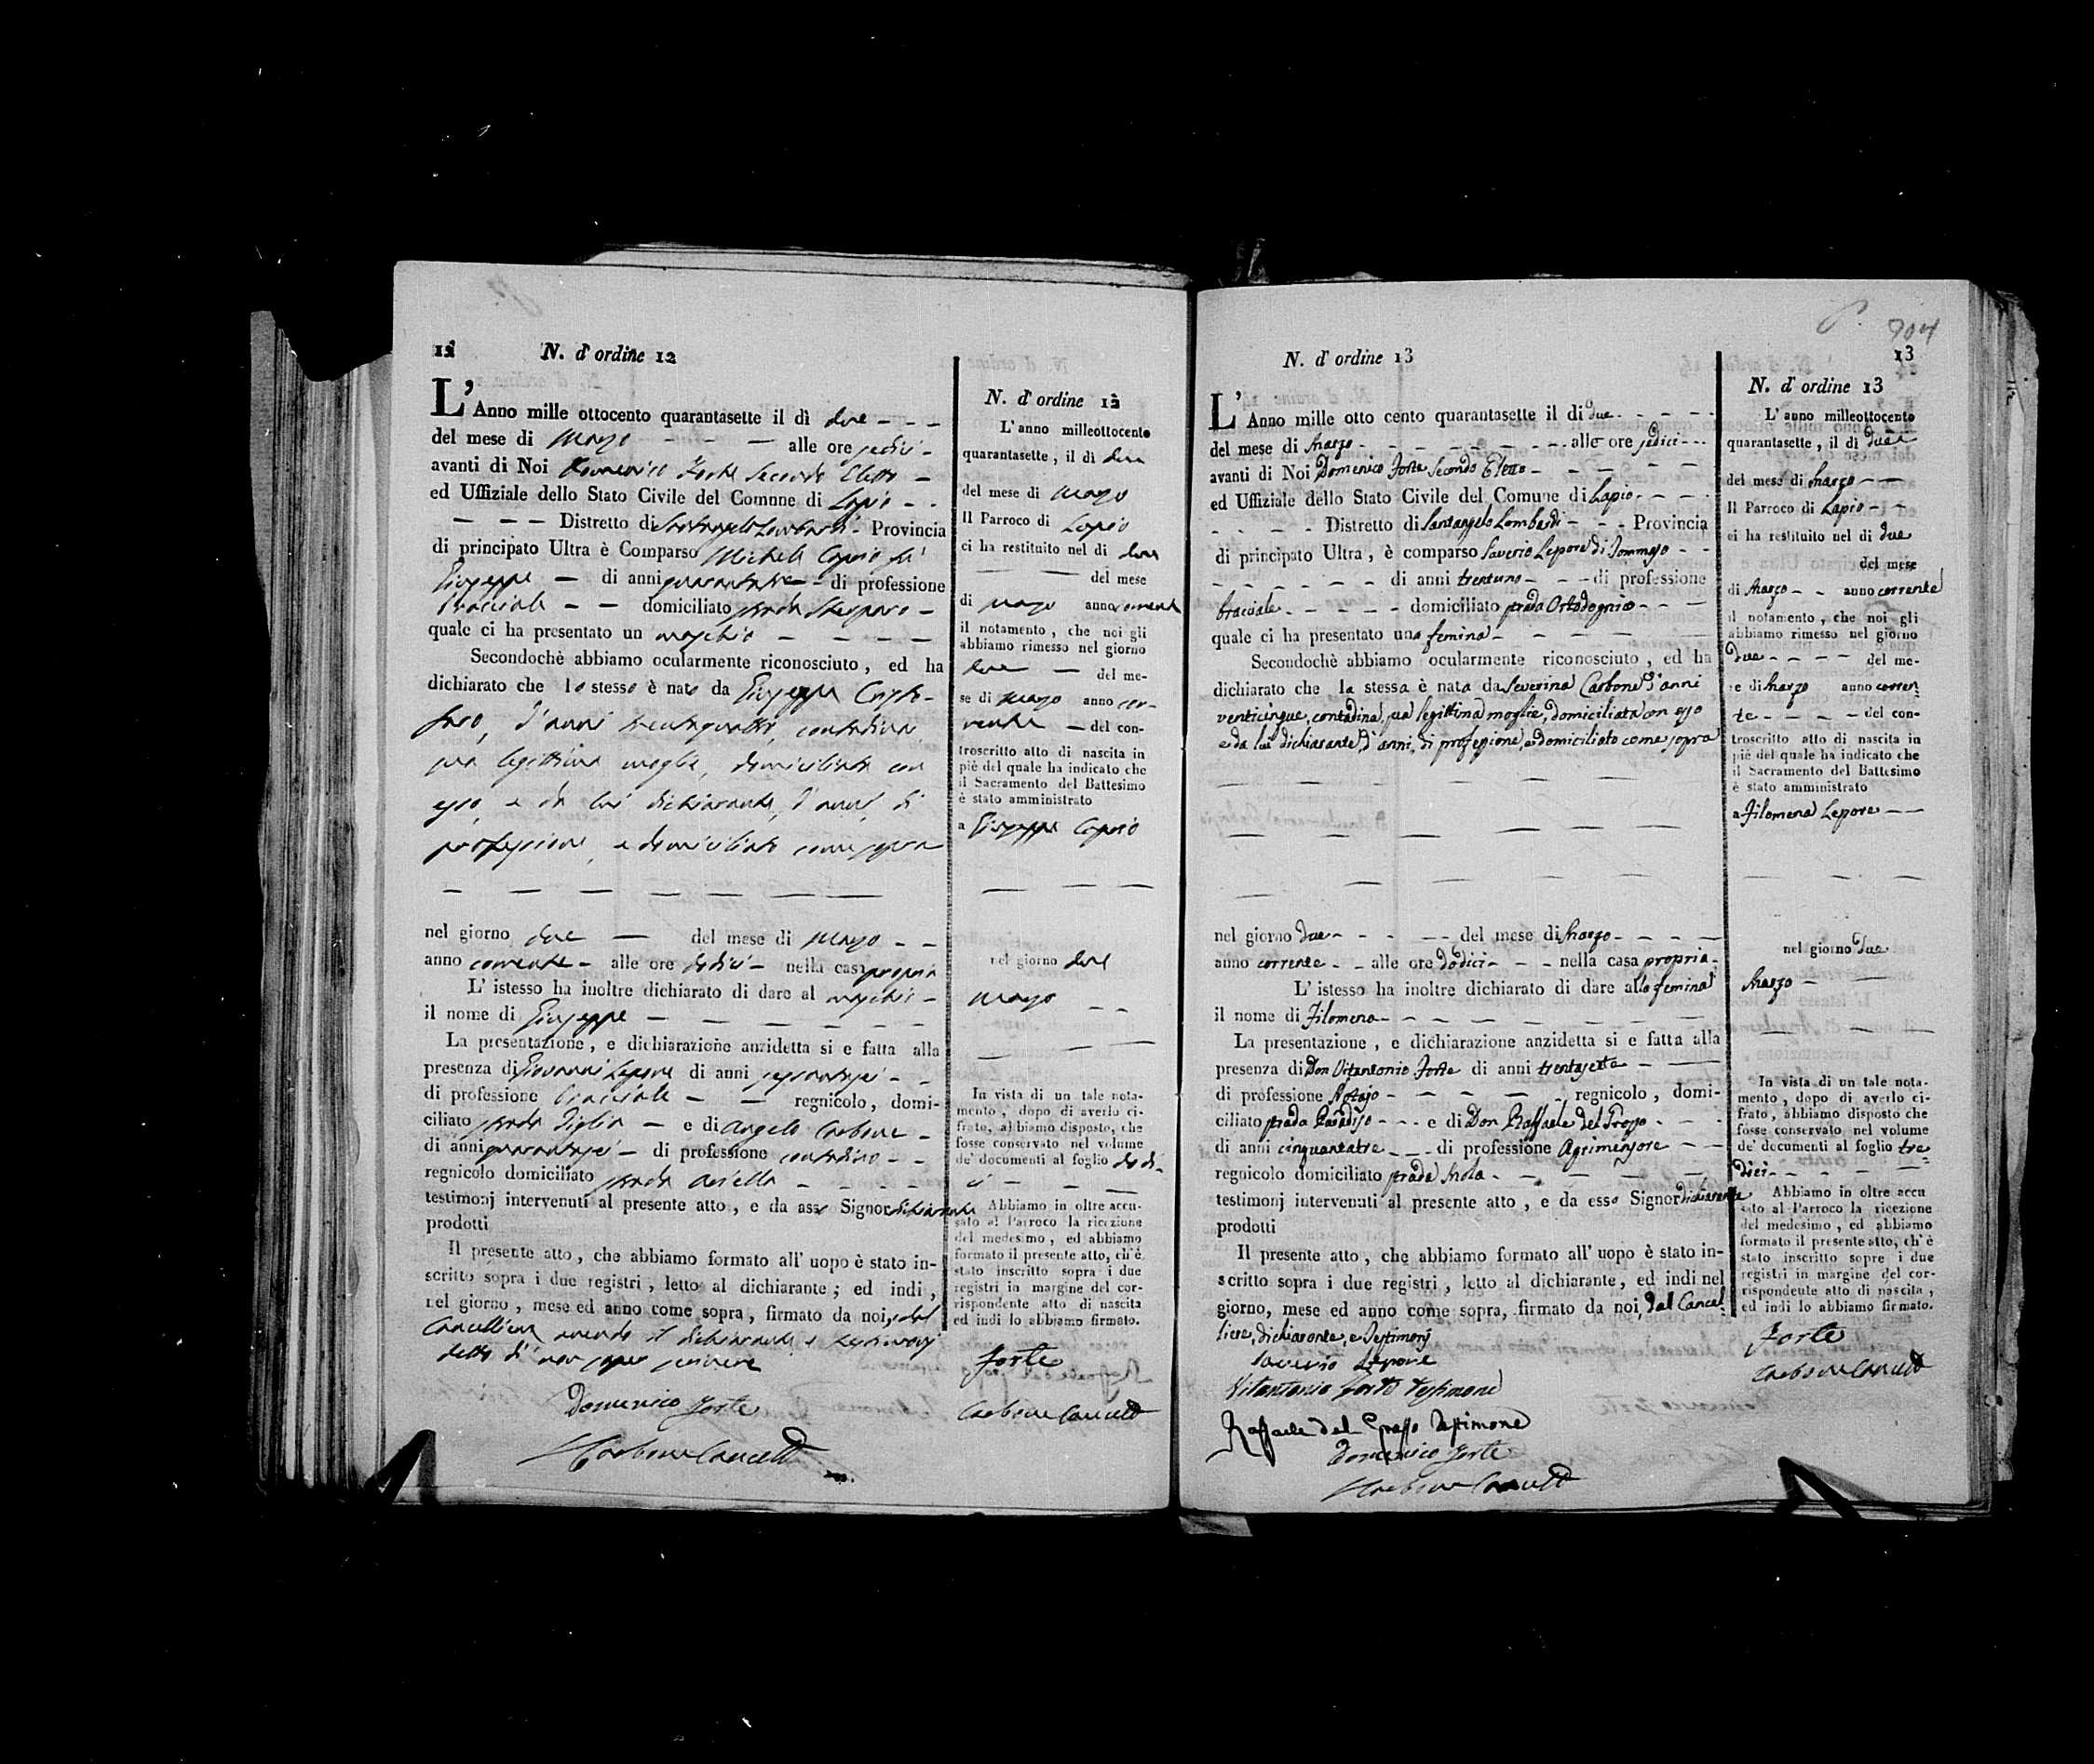 12
N. d' ordine 12
L' Anno mille ottocento quarantasette il dì due
del mese di Marzo alle ore sedici
avanti di Noi Domenico Forte Secondo Eletto
ed Uffiziale dello Stato Civile del Comnne di Lapio
Distretto di Santangelo Lombardi Provincia
di principato Ultra è Comparso Michele Caprio fu
Giuseppe di anni di professione
bracciale domiciliato strada
quale ci ha presentato un maschio
Secondochè abbiamo ocularmente riconosciuto, ed ha
dichiarato che lo stesso è nato da Giuseppa
d'anni trentaquattro, contadina,
sua legittima moglie, domiciliata con
esso, e da lui dichiarante, d'anni, di
professione, e domiciliato come sopra
nel giorno due del mese di Marzo
anno corrente alle ore dodici nella casa propria
L' istesso ha inoltre dichiarato di dare al maschio
il nome di Giuseppe
La presentazione, e dichiarazione anzidetta si e fatta alla
presenza di Giovanni Lepore di anni sessantasei
di professione bracciale regnicolo, domi-
ciliato strada e di Angelo Carbone
di anni quarantasei di professione contadino
regnicolo domiciliato strada
testimonj intervenuti al presente atto, e da asso Signor dichiarante
prodotti
Il presente atto, che abbiamo formato all' uopo è stato in-
scritto sopra i due registri, letto al dichiarante; ed indi,
nel giorno, mese ed anno come sopra, firmato da noi, e dal
Cancelliere avendo il dichiarante e testimonj
detto di non saper scrivere
Domenico Forte
Carbone Cancell
N. d' ordine 12
L' anno milleottocento
quarantasette, il dì due
del mese di Marzo
Il Parroco di Lapio
ci ha restituito nel di due
del mese
di Marzo anno corrente
il notamento, che noi gli
abbiamo rimesso nel giorno
due del me-
se di Marzo anno cor-
rente del con-
troscritto atto di nascita in
piè del quale ha indicato che
il Sacramento del Battesimo
è stato amministrato
a Giuseppe Caprio
nel giorno due
Marzo
In vista di un tale nota-
mento, dopo di averlo ci-
frato, abbiamo disposto, che
fosse conservato nel volume
de' documenti al foglio dodi-
ci
Abbiamo in oltre accu-
sato al Parroco la ricezione
del medesimo, ed abbiamo
formato il presente atto, ch'è
stato inscritto sopra i due
registri in margine del cor-
rispondente atto di nascita
ed indi lo abbiamo firmato.
Forte
Carbone Cancell
904
13
N. d' ordine 13
L' Anno mille otto cento quarantasette il di due
del mese di Marzo alle ore sedici
avanti di Noi Domenico Forte Secondo Eletto
ed Uffiziale dello Stato Civile del Comune di Lapio
Distretto di Santangelo Lombardi Provincia
di principato Ultra, è comparso Saverio Lepore di Tommaso
di anni trentuno di professione
bracciale domiciliato strada
quale ci ha presentato una femina
Secondochè abbiamo ocularmente riconosciuto, ed ha
dichiarato che la stessa è nata da Severina Carbone d'anni
venticinque, contadina, sua legittima moglie, domiciliata con esso
e da lui dichiarante, d'anni, di professione, e domiciliato come sopra
nel giorno due del mese di Marzo
anno corrente alle ore dodici nella casa propria
L' istesso ha inoltre dichiarato di dare alla femina
il nome di Filomena
La presentazione, e dichiarazione anzidetta si e fatta alla
presenza di Don Vitantonio Forte di anni trentasette
di professione Notajo regnicolo, domi-
ciliato strada Paradiso e di Don Raffaele del Grosso
di anni cinquantatre di professione Agrimensore
regnicolo domiciliato strada
testimonj intervenuti al presente atto, e da esso Signor dichiarante
prodotti
Il presente atto, che abbiamo formato all' uopo è stato in-
scritto sopra i due registri, letto al dichiarante, ed indi nel
giorno, mese ed anno come sopra, firmato da noi, dal Cancel-
liere, dichiarante, e Testimonj
Saverio Lepore
Vitantonio Forte Testimone
Raffaele del Grosso Testimone
Domenico Forte
Carbone Cancell
N. d' ordine 13
L' anno milleottocento
quarantasette, il dì due
del mese di Marzo
Il Parroco di Lapio
ci ha restituito nel di due
del mese
di Marzo anno corrente
il notamento, che noi gli
abbiamo rimesso nel giorno
due del me-
se di Marzo anno corren-
te del con-
troscritto atto di nascita in
piè del quale ha indicato che
il Sacramento del Battesimo
è stato amministrato
a Filomena Lepore
nel giorno due
Marzo
In vista di un tale nota-
mento, dopo di averlo ci-
frato, abbiamo disposto che
fosse conservato nel volume
de' documenti al foglio tre-
dici
Abbiamo in oltre accu
sato al Parroco la ricezione
del medesimo, ed abbiamo
formato il presente atto, ch'è
stato inscritto sopre i due
registri in margine del cor-
rispondente atto di nascita,
ed indi lo abbiamo firmato.
Forte
Carbone Cancell